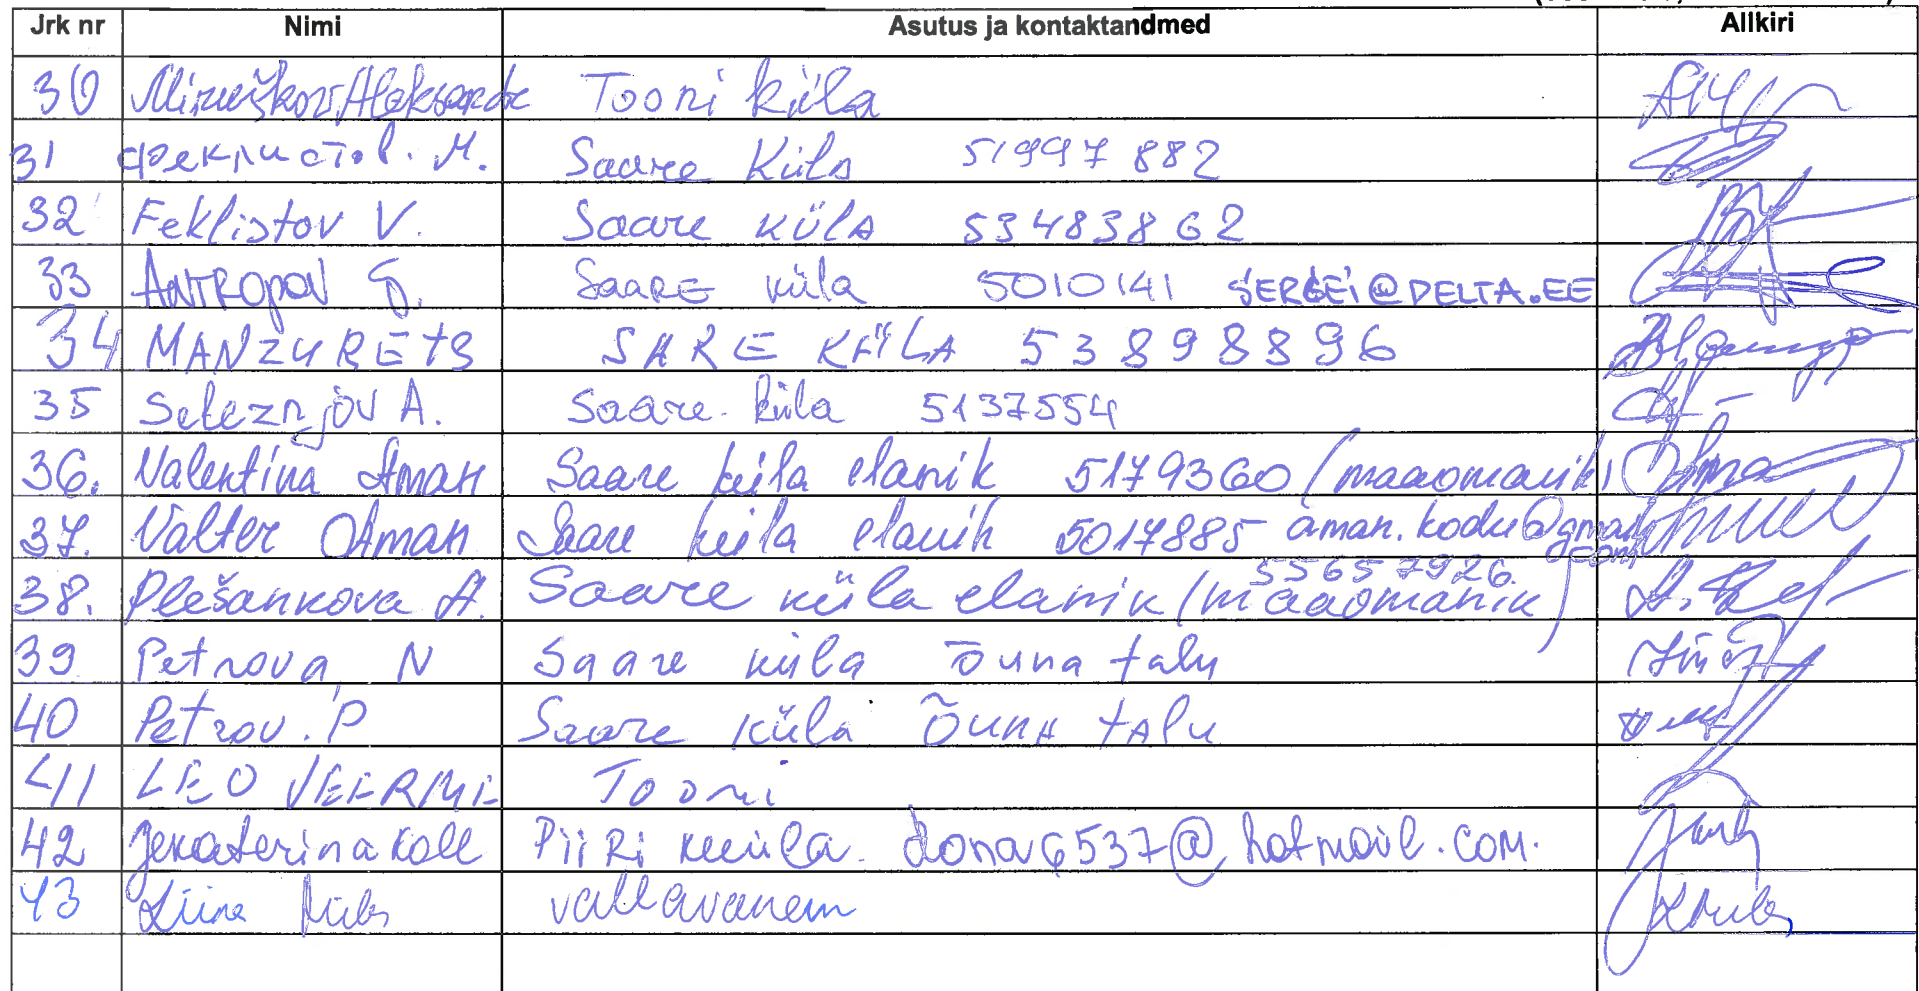 Jrk nr Nimi Asutus ja kontaktandmed Allkiri
30 Aleksandr Tooni küla
31 М. Saare Küla 51997882
32 Feklistov V. Saare küla 53483862
33 ANTROPOV S. SaaRE küla 5010141 SERGEi@DELTA.EE
34 MANZURETS SARE KÜLA 53898896
35 Seleznjov A. Saare küla 5137554
36. Valentina Aman Saare küla elanik 5179360 (maaomanik)
37. Valter Aman Saare küla elanik 5017885 aman.kodu@gmail.com
38. Plešankova A. Saare küla elanik (maaomanik) 55657926
39 Petrova N Saare küla Õuna talu
40 Petrov. P Saare küla ÕunA tAlu
41 LEO VEERME Tooni
42 Jekaterina Koll PiiRi küla dona6537@hotmail.com.
43 Liina vallavanem